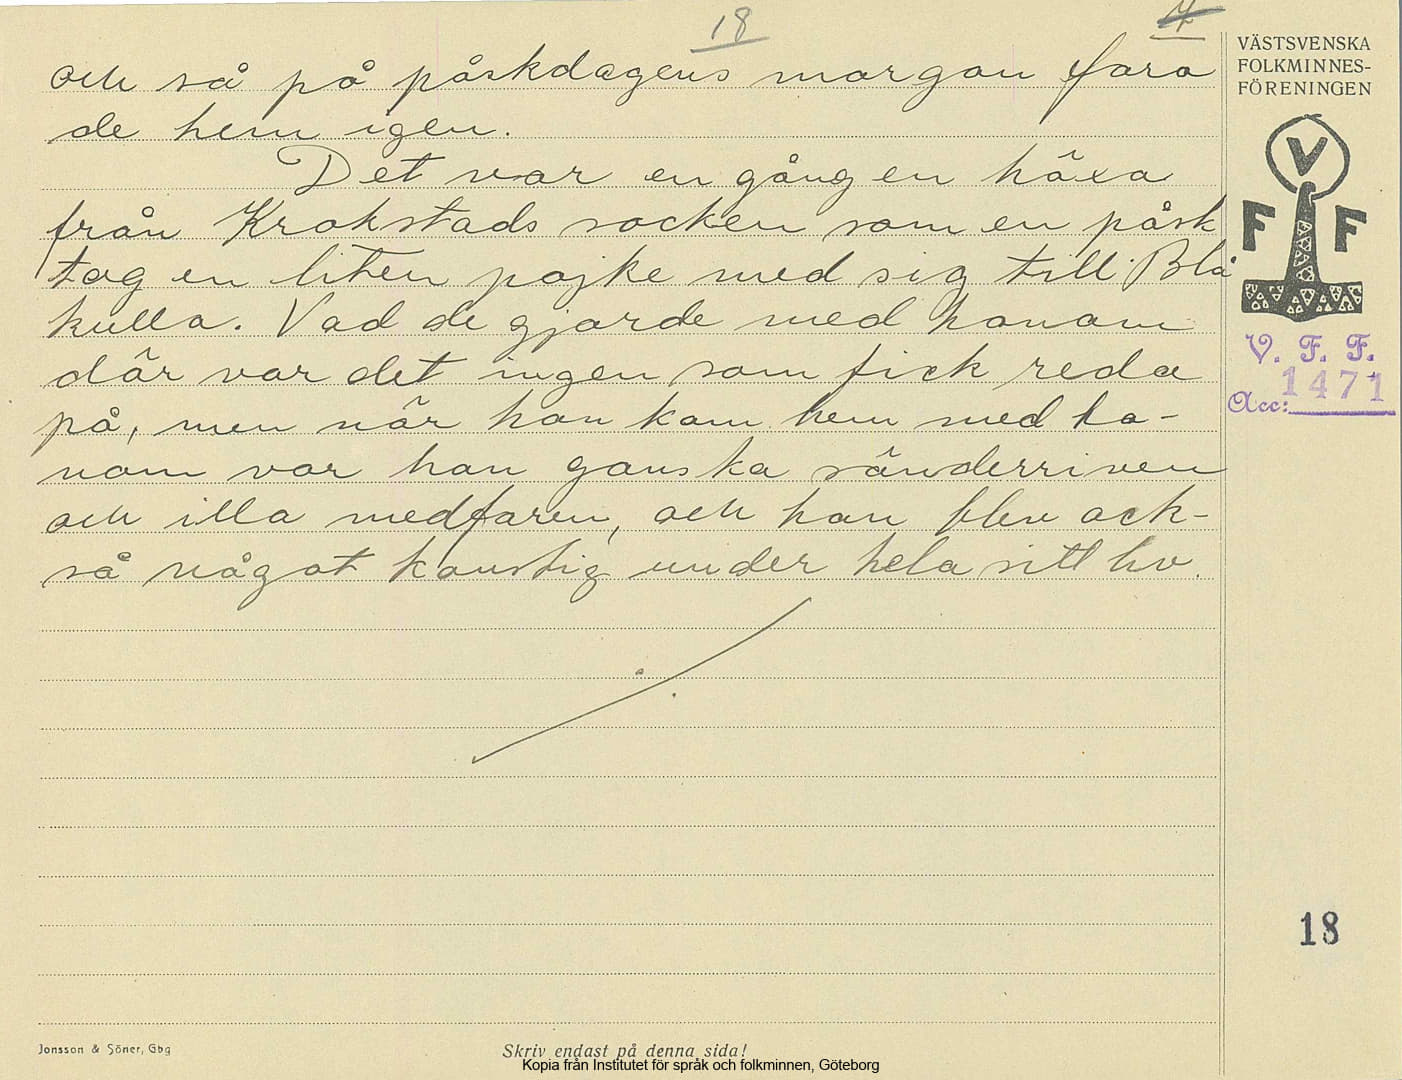 18
7
och så på påskdagens morgon fara
de hem igen.
Det var en gång en häxa
från Krokstads socken som en påsk
tog en liten pojke med sig till Blå
kulla. Vad de gjorde med honom
där var det ingen som fick reda
på, men när hon kom hem med ho-
nom var han ganska sönderriven
och illa medfaren, och han blev ock-
så något konstig under hela sitt liv.
VÄSTSVENSKA
FOLKMINNES-
FÖRENINGEN
V
F F
V. F. F.
Acc: 1471
18
Jonsson & Söner, Gbg
Skriv endast på denna sida!
Kopia från Institutet för språk och folkminnen, Göteborg